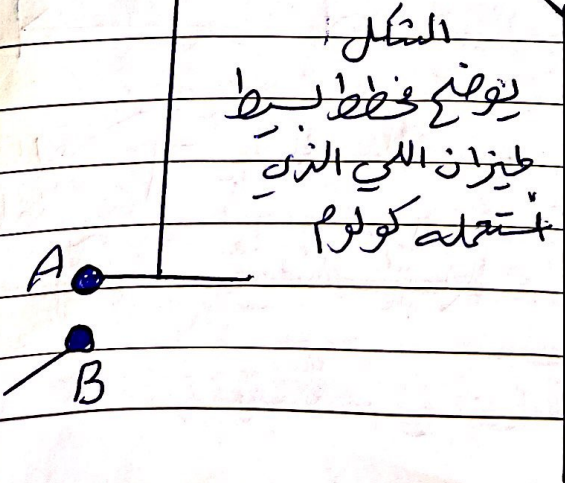 الشكل
يوضح مخطط بسيط
لميزان اللي الذي
أستعمله كولوم
A
B